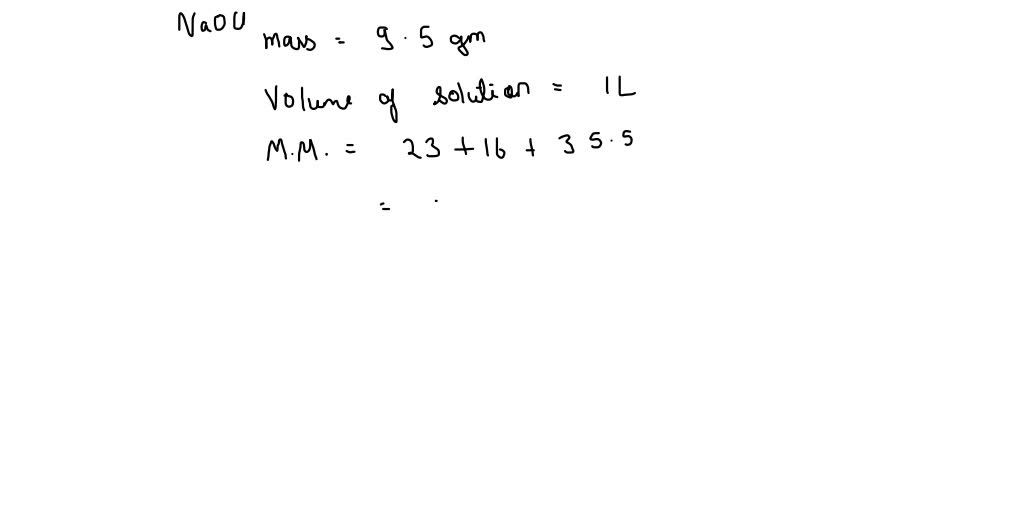 NaOCl mass = 9.5 gm
Volume of solution = 1L
M.M. = 23 + 16 + 35.5
= .